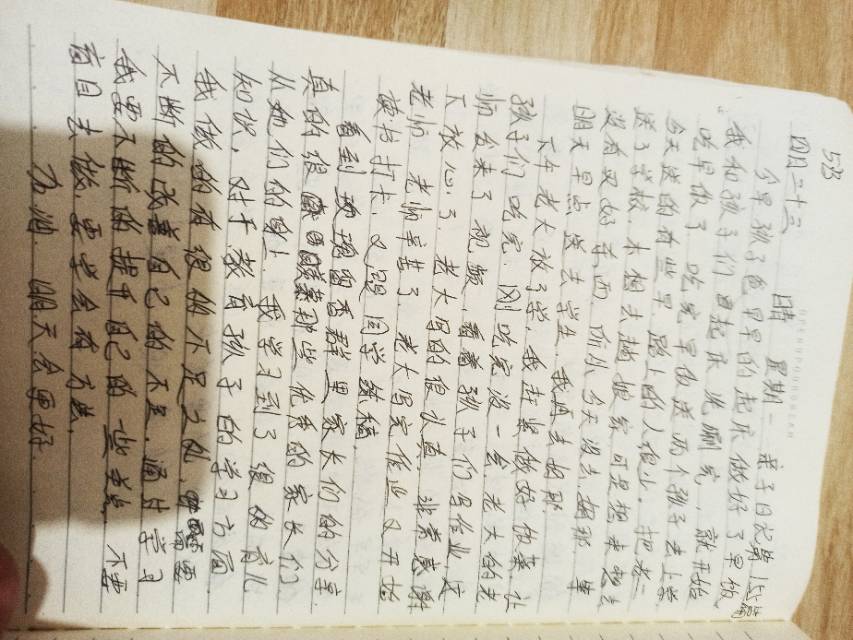 53
四月二十三 晴 星期一 亲子日记第
今早孩子爸早早的起床做好了早饭
我和孩子们 起床洗刷完,就开始
吃早饭了 吃完早饭送两个孩子去上学
今天送的有些早,路上的人很少,把老二
送了学校,本想去趟娘家可是想来想去
没有买好东西 所以今天没去 那 等
明天早点送去学生,我再去
下午老大放了学,我赶紧做好饭菜让
孩子们吃完,刚吃完没一会老大的老
师会来了视频,看着孩子们写作业,这
下放心了,老大写的很认真 非常感谢
老师 老师辛苦了 老大写完作业又开始
读书打卡,又跟同学
看到 群里家长们的分享
真的很 那些优秀的家长们
从她们的身上 我学习到了很的育儿
知识,对于教育孩子的学习方面
我做的有很的不足之处 需要
不断的改善自己的不足,通过学习
我要不断的提升自己的一些 不要
盲目去做,要学会有方法,
加油 明天会更好